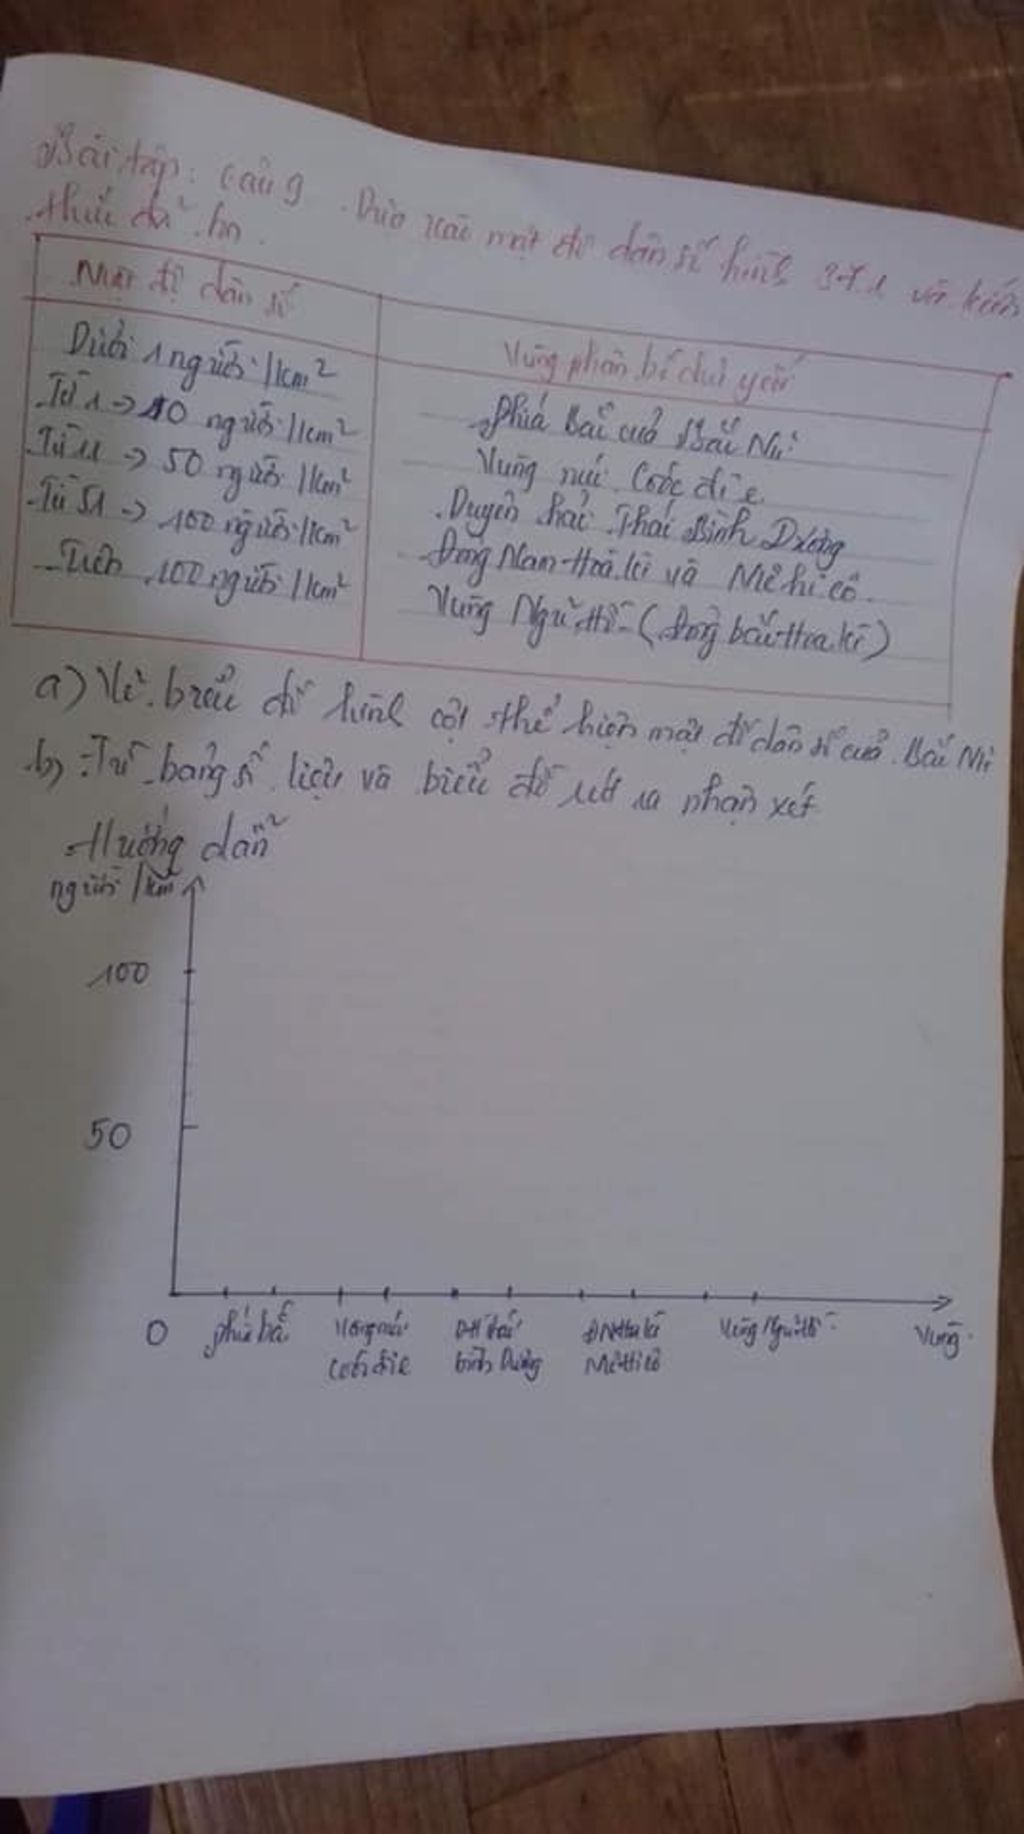 Bài tập: câu 9. Dựa vào mật độ dân số hình 37.1 và kiến
thức đã học.
Mật độ dân số
Vùng phân bố chủ yếu
Dưới 1 người/km²
Phía Bắc của Bắc Mĩ
Từ 1 -> 10 người/km²
Vùng núi Cooc đi e
Từ 11 -> 50 người/km²
Duyên hải Thái Bình Dương
Từ 51 -> 100 người/km²
Đông Nam Hoa kì và Mê hi cô.
Trên 100 người/km²
Vùng Ngũ Hồ (đông bắc Hoa kì)
a) Vẽ biểu đồ hình cột thể hiện mật độ dân số của Bắc Mĩ
b) Từ bảng số liệu và biểu đồ rút ra nhận xét
Hướng dẫn
người/km²
100
50
0
phía bắc
Vùng núi
cooc đi e
DH Thái
bình Dương
ĐN Hoa kì
Mê hi cô
Vùng Ngũ Hồ
Vùng